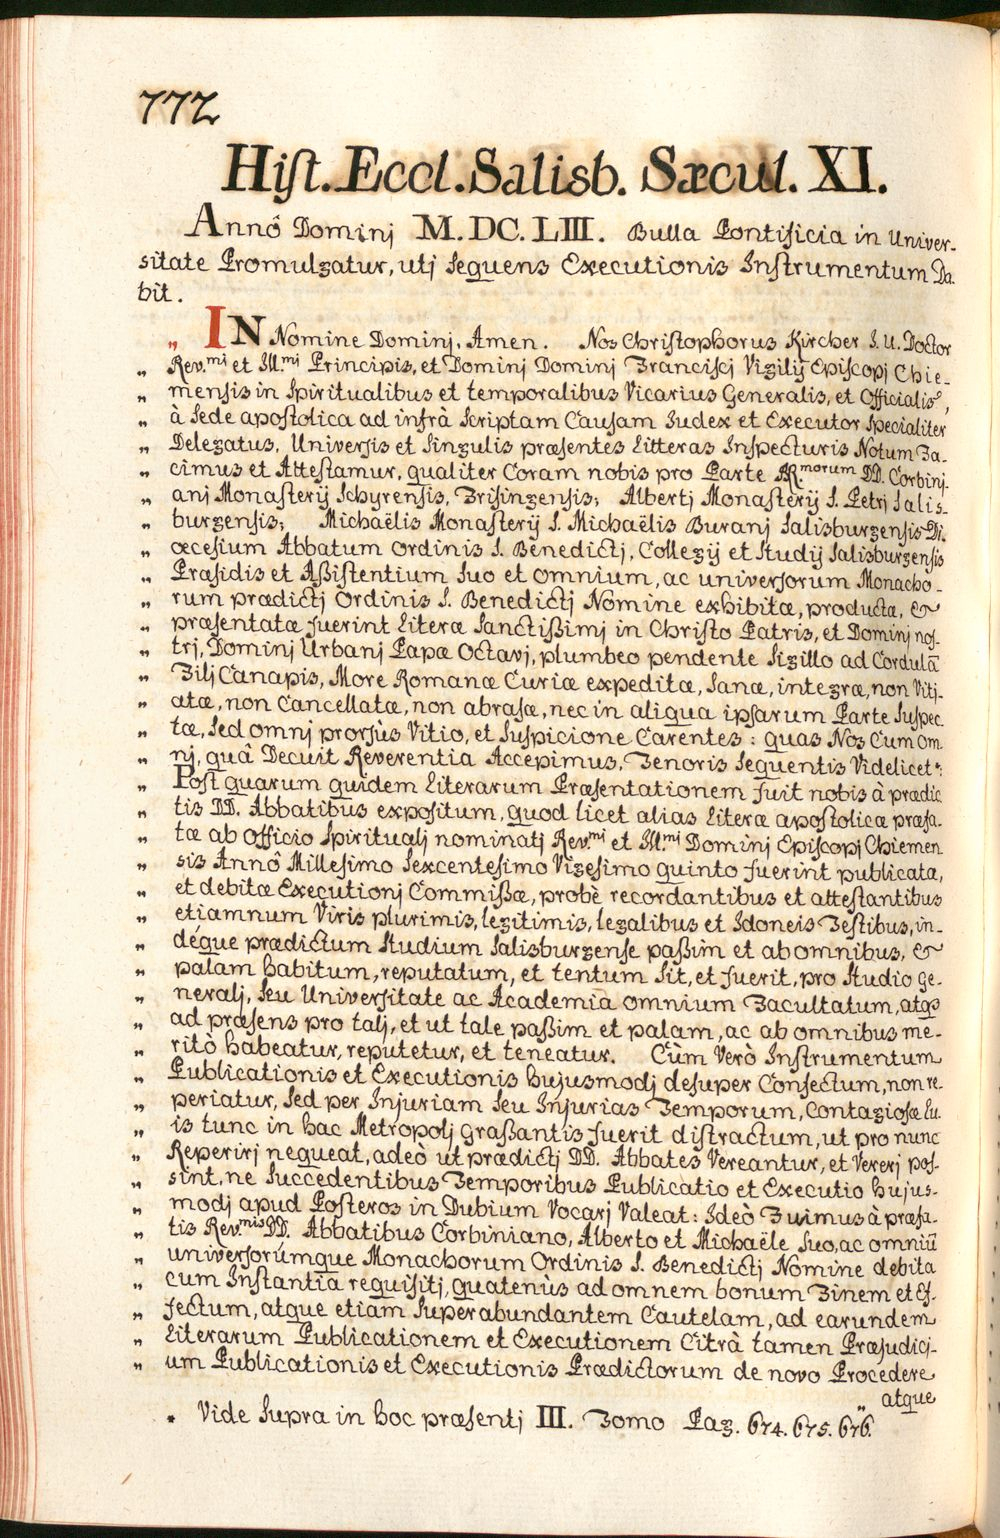 772
Hist. Eccl. Salisb. Sæcul. XI.
Annô Dominj M. DC. LIII. Bulla Pontificia in Univer-
sitate Promulgatur, utj sequens Executionis Instrumentum Da-
bit.
„ IN Nomine Dominj, Amen. Nos Christophorus Kircher I. U. Doctor
„ Rev.mi et Ill.mi Principis, et Dominj Dominj Franciscj Vigilij Episcopj Chie-
„ mensis in Spiritualibus et temporalibus Vicarius Generalis, et Officialis,
„ à Sede apostolica ad infrà Scriptam Causam Iudex et Executor Specialiter
„ Delegatus, Universis et Singulis præsentes Litteras Inspecturis Notum Fa-
„ cimus et Attestamur, qualiter Coram nobis pro Parte RR.morum DD. Corbinj-
„ anj Monasterij Schyrensis, Frisingensis; Albertj Monasterij S. Petrj Salis-
„ burgensis; Michaëlis Monasterij S. Michaëlis Buranj Salisburgensis Di-
„ œcesium Abbatum Ordinis S. Benedictj, Collegij et Studij Salisburgensis
„ Præsidis et Aßistentium Suo et omnium, ac universorum Monacho-
„ rum prædictj Ordinis S. Benedictj Nomine exhibitæ, producta, &
„ præsentatæ fuerint Literæ Sanctißimj in Christo Patris, et Dominj nos-
„ trj, Dominj Urbanj Papæ Octavj, plumbeo pendente Sigillo ad Cordulā
„ Filj Canapis, More Romanæ Curiæ expeditæ, Sanæ, integræ, non Vitj-
„ atæ, non Cancellatæ, non abrasæ, nec in aliqua ipsarum Parte Suspec-
„ tæ, Sed omnj prorsùs Vitio, et Suspicione Carentes: quas Nos Cum om
„ nj, quâ Decuit Reverentia Accepimus, Tenoris Sequentis Videlicet*:
„ Post quarum quidem Literarum Præsentationem fuit nobis à prædic
„ tis DD. Abbatibus expositum, quod licet alias Literæ apostolicæ præfa-
„ tæ ab Officio Spiritualj nominatj Rev.mi et Ill.mi Dominj Episcopj Chiemen
„ sis Annô Millesimo Sexcentesimo Vigesimo quinto fuerint publicata,
„ et debitæ Executionj Commißæ, probè recordantibus et attestantibus
„ etiamnum Viris plurimis, legitimis, legalibus et Idoneis Testibus, in-
„ déque prædictum Studium Salisburgense paßim et ab omnibus, &
„ palam habitum, reputatum, et tentum Sit, et fuerit, pro Studio Ge-
„ neralj, Seu Universitate ac Academia omnium Facultatum, atqȝ
„ ad præsens pro talj, et ut tale paßim et palam, ac ab omnibus me-
„ ritò habeatur, reputetur, et teneatur. Cùm Verò Instrumentum
„ Publicationis et Executionis hujusmodj desuper Confectum, non re-
„ periatur, Sed per Injuriam Seu Injurias Temporum, Contagiosæ Lu-
„ is tunc in hac Metropolj Graßantis fuerit distractum, ut pro nunc
„ Reperirj nequeat, adeò ut prædictj DD. Abbates Vereantur, et Vererj pos-
„ sint, ne Succedentibus Temporibus Publicatio et Executio hujus-
„ modj apud Posteros in Dubium Vocarj Valeat: Ideò Fuimus à præfa-
„ tis Rev.mis DD. Abbatibus Corbiniano, Alberto et Michaële Suo, ac omniū
„ universorúmque Monachorum Ordinis S. Benedictj Nomine debita
„ cum Instantia requisitj, quatenùs ad omnem bonum Finem et Ef-
„ fectum, atque etiam Superabundantem Cautelam, ad earundem
„ Literarum Publicationem et Executionem Citrà tamen Præjudicj-
„ um Publicationis et Executionis Prædictorum de novo Procedere
„ atque
* Vide Supra in hoc præsentj III. Tomo Pag. 674. 675. 676.